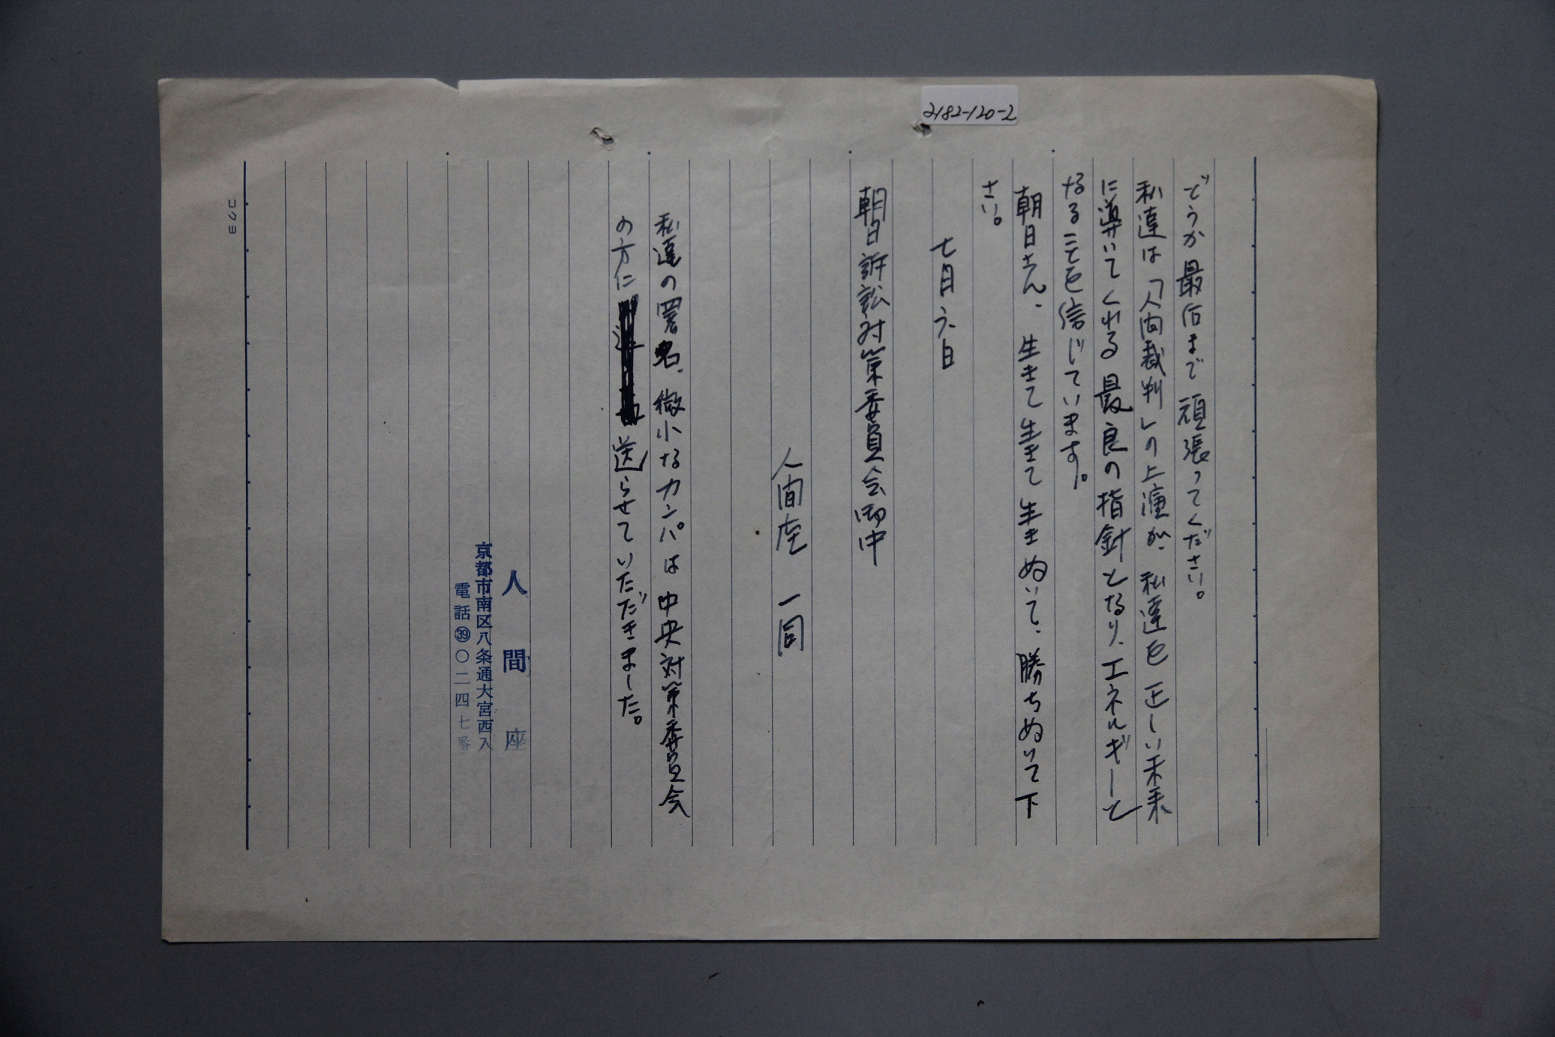 2182-120-2
どうか最后まで頑張ってください。
私達は「人向裁判」の上演が、私達を正しい未来
に導いてくれる最良の指針となり、エネルギーと
なることを信じています。
朝日さん、生きて生きて生きぬいて、勝ちぬいて下
さい。
七月六日
朝日訴訟対策委員会御中
人間座 一同
私達の署名、微小なカンパは中央対策委員会
の方に送らせていただきました。
人間座
京都市南区八条通大宮西入
電話㊴〇二四七番
コクヨ